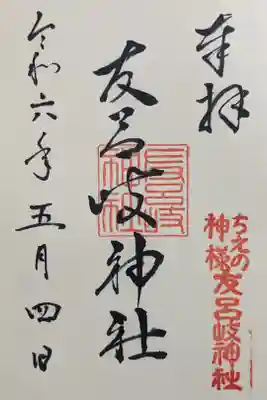 奉拝
ちえの
神様友呂岐神社
友呂岐神社
令和六年五月四日